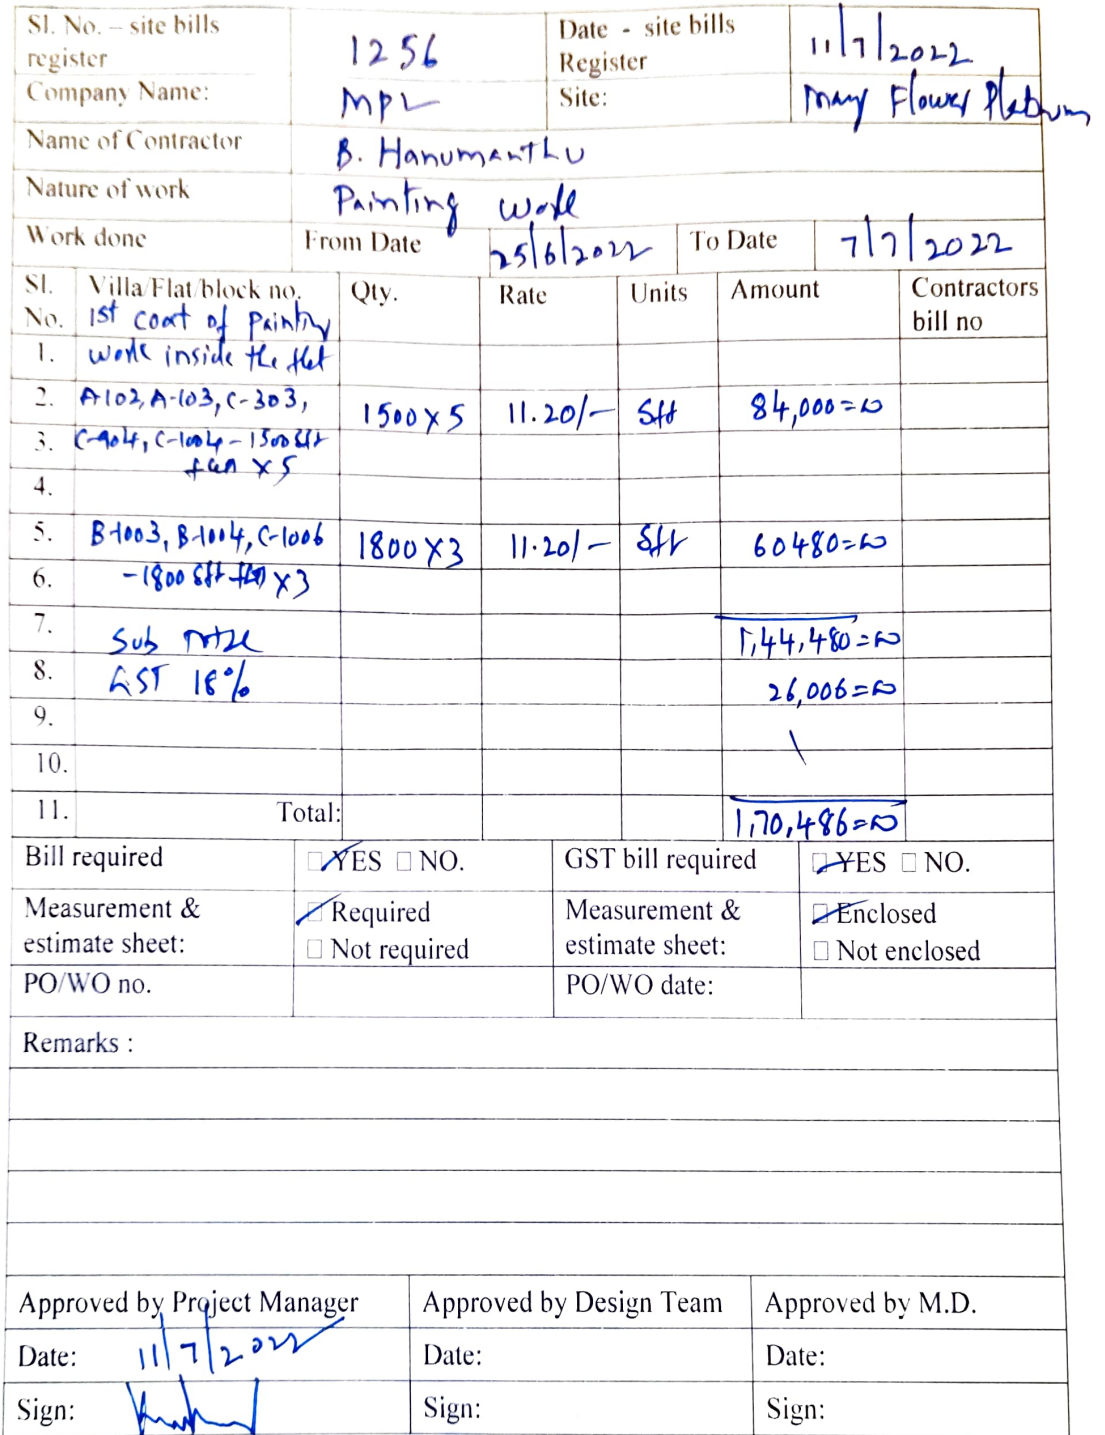 Sl. No. – site bills register 1256 Date - site bills Register 11/7/2022
Company Name: MPL Site: May Flower Platinum
Name of Contractor B. Hanumanthu
Nature of work Painting work
Work done From Date 25/6/2022 To Date 7/7/2022
Sl. No. Villa/Flat/block no. Qty. Rate Units Amount Contractors bill no
1st coat of Painting
1. work inside the flat
2. A-102, A-103, C-303, 1500 X 5 11.20/- Sft 84,000=00
3. C-904, C-1004 - 1500 Sft
flat X 5
4.
5. B-1003, B-1004, C-1006 1800 X 3 11.20/- Sft 60480=00
6. -1800 Sft flat X 3
7. Sub Total 1,44,480=00
8. GST 18% 26,006=00
9.
10.
11. Total: 1,70,486=00
Bill required YES NO. GST bill required YES NO.
Measurement & estimate sheet: Required Not required Measurement & estimate sheet: Enclosed Not enclosed
PO/WO no. PO/WO date:
Remarks :
Approved by Project Manager Approved by Design Team Approved by M.D.
Date: 11/7/2022 Date: Date:
Sign: Sign: Sign: